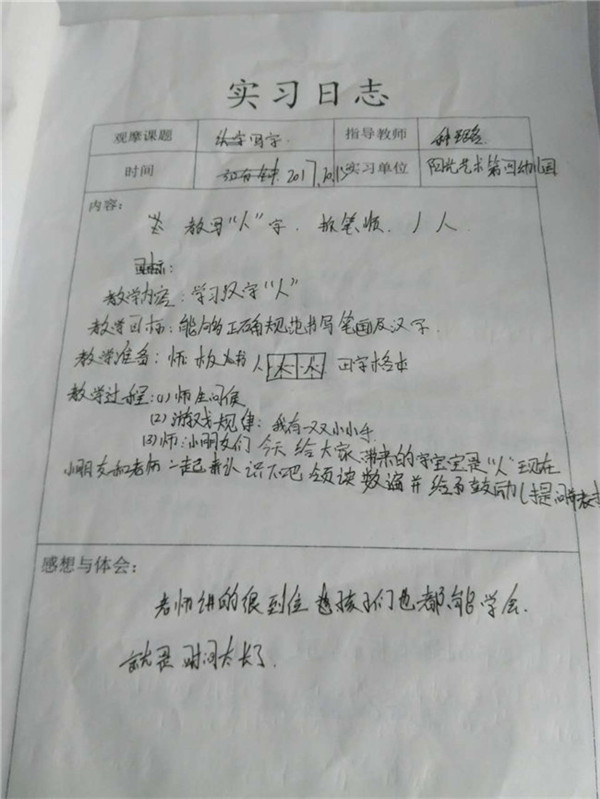 实习日志
观摩课题 写字 指导教师
时间 2017.10.13 实习单位 阳光艺术第四幼儿园
内容:
教写“人”字. 按笔顺. 丿 人
目标:
教学内容: 学习汉字“人”
教学目标: 能够正确规范书写笔画及汉字.
教学准备: 师 板书 人 人 人 田字格本
教学过程: (1) 师生问候
(2) 游戏规律: 我有一双小小手
(3) 师: 小朋友们 今天 给大家 带来的字宝宝是“人”现在
小朋友和老师一起来认识下吧 领读数遍并给予鼓励(提问
感想与体会:
老师讲的很到位 孩子们也都能学会.
就是时间太长了.